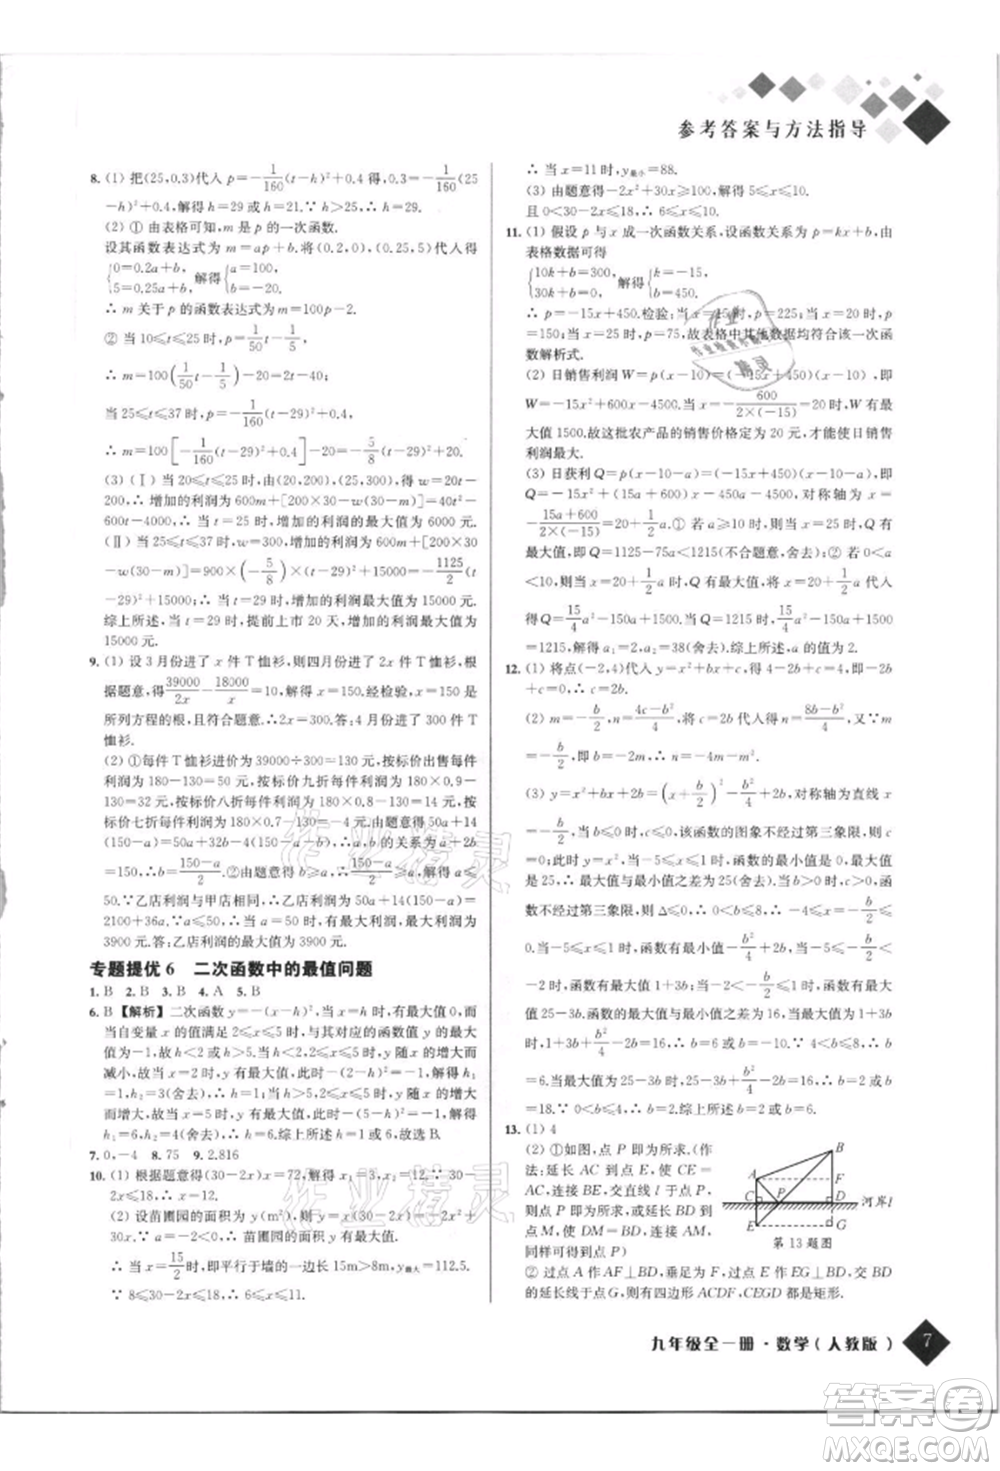 参考答案与方法指导
8. (1) 把(25,0.3)代入 p=-1/160(t-h)²+0.4 得,0.3=-1/160(25
-h)²+0.4,解得 h=29 或 h=21.∵h>25,∴h=29.
(2) ① 由表格可知,m 是 p 的一次函数.
设其函数表达式为 m=ap+b.将(0.2,0),(0.25,5)代入得
{0=0.2a+b, 5=0.25a+b, 解得{a=100, b=-20.
∴ m 关于 p 的函数表达式为 m=100p-2.
② 当 10≤t≤25 时,p=1/50 t-1/5,
∴ m=100(1/50 t-1/5)-20=2t-40.
当 25≤t≤37 时,p=-1/160(t-29)²+0.4,
∴ m=100[-1/160(t-29)²+0.4]-20=-5/8(t-29)²+20.
(3) (Ⅰ) 当 20≤t≤25 时,由(20,200),(25,300),得 w=20t
-200,∴ 增加的利润为 600m+[200×30-w(30-m)]=40t²-
600t-4000,∴ 当 t=25 时,增加的利润的最大值为 6000 元.
(Ⅱ) 当 25≤t≤37 时,w=300,增加的利润为 600m+[200×30
-w(30-m)]=900×(-5/8)×(t-29)²+15000=-1125/2(t-
29)²+15000,∴ 当 t=29 时,增加的利润最大值为 15000 元.
综上所述,当 t=29 时,提前上市 20 天,增加的利润最大值为
15000 元.
9. (1) 设 3 月份进了 x 件 T 恤衫,则四月份进了 2x 件 T 恤衫,根
据题意,得 39000/2x-18000/x=10,解得 x=150.经检验,x=150 是
所列方程的根,且符合题意.∴2x=300.答:4 月份进了 300 件 T
恤衫.
(2) ①每件 T 恤衫的进价为 39000÷300=130(元),按标价出售每
件利润为 180-130=50 元,按标价九折每件利润为 180×0.9-
130=32 元,按标价八折每件利润为 180×0.8-130=14 元,按
标价七折每件利润为 180×0.7-130=-4 元.由题意得 50a+14
(150-a)=50a+32b-4(150-a-b),∴a,b 的关系式为 b=
(150-a)/2. ②由题意得 b≥a,∴(150-a)/2≥a,∴a≤
50.∵乙店利润与甲店相同,∴乙店利润为 50a+14(150-a)=
2100+36a.∵a≤50,∴当 a=50 时,有最大利润,最大利润为
3900 元.答:乙店利润的最大值为 3900 元.
专题提优 6 二次函数中的最值问题
1. B 2. B 3. B 4. A 5. B
6. B 【解析】二次函数 y=-(x-h)²,当 x=h 时,有最大值 0,而
当自变量 x 的值满足 2≤x≤5 时,与其对应的函数值 y 的最大
值为-1,故 h<2 或 h>5.当 h<2 时,2≤x≤5 时,y 随 x 的增大而
减小,故当 x=2 时,y 有最大值,此时-(2-h)²=-1,解得
h₁=1,h₂=3(舍去),∴ h=1;当 h>5 时,2≤x≤5 时,y 随 x 的
增大而增大,故当 x=5 时,y 有最大值,此时-(5-h)²=-1,解
得 h₁=6,h₂=4(舍去),∴ h=6.综上可知 h=1 或 6,故选 B.
7. 0,-4 8. 75 9. 2.816
10. (1) 根据题意得(30-2x)x=72,解得 x₁=3,x₂=12.∵30-
2x≤18,∴x≥6,∴ x=12.
(2) 设苗圃园的面积为 y(m²),∴ y=x(30-2x)=-2x²+
30x.∵a=-2<0,∴ 苗圃园的面积 y 有最大值,
∴ 当 x=15/2 时,即平行于墙的一边长 15m>8m,y最大=112.5.
∵ 8≤30-2x≤18,∴ 6≤x≤11,
∴ 当 x=11 时,y最小=88.
(3) 由题意得-2x²+30x≥100,解得 5≤x≤10.
且 0<30-2x≤18,∴ 6≤x≤10.
11. (1) 假设 p 与 x 成一次函数关系,设函数关系式为 p=kx+b,由
表格数据可得
{10k+b=300, 30k+b=0, 解得{k=-15, b=450.
∴ p=-15x+450.检验:当 x=15 时,p=
150;当 x=25 时,p=75,故表格中其他数据均符合该一次函
数解析式.
(2) 日销售利润 W=p(x-10)=(-15x+450)(x-10),即
W=-15x²+600x-4500,当 x=-600/(2×(-15))=20 时,W 有最
大值 1500.故这批农产品的销售价格定为 20 元,才能使日销售
利润最大.
(3) 日获利 Q=p(x-10-a)=(-15x+450)(x-10-a),即
Q=-15x²+(600+15a)x-(450a+4500),对称轴为直线 x=
-(15a+600)/(2×(-15))=20+1/2a.① 若 a≥10,则当 x=25 时,Q 有
最大值,即 Q=1125-75a<1215(不合题意,舍去);② 若 0<a
<10,则当 x=20+1/2a 时,Q 有最大值,将 x=20+1/2a 代入
得 Q=15/4a²-150a+1500,当 Q=1215 时,15/4a²-150a+1500
=1215,解得 a₁=2,a₂=38(舍去).综上所述,a 的值为 2.
12. (1) 将点(-2,4)代入 y=x²+bx+c,得 4-2b+c=4,即-2b
+c=0,∴ c=2b.
(2) m=-b/2,n=(4c-b²)/4,将 c=2b 代入得 n=(8b-b²)/4,又∵m=
-b/2,即 b=-2m,∴ n=-4m-m².
(3) y=x²+bx+2b=(x+b/2)²-b²/4+2b,对称轴为直线 x=
-b/2,当 b≤0 时,c≤0,该函数的图象不经过第三象限,则 c=0,
此时 y=x²,当-5≤x≤1 时,最大值与最小值之差为 25,舍去;当 b>0 时,c>0,函
数不经过第三象限,则 Δ≤0,∴ 0<b≤8,∴ -4≤x=-b/2<
0.当-5≤x≤1 时,函数有最小值-b²/4+2b,当-5≤-b/2<
-2 时,函数有最大值 1+3b,当-2<-b/2≤1 时,函数有最大值
25-3b.
13. (1) 4
(2) ①如图所示,点 P 即为所求.(作
法:延长 AC 到点 E,使 CE=
AC,连接 BE,交直线 l 于点 P,
则点 P 即为所求)
点 M,使 DM=BD,连接 AM,
同样可得到点 P)
② 过点 A 作 AF⊥BD,垂足为 F,过点 E 作 EG⊥BD,交 BD 的
延长线于点 G,则有四边形 ACDF,CEGD 都是矩形.
A B C P D E F G 河岸 l
第 13 题图
九年级全一册·数学(人教版)
7
作业精灵
答案圈
MXQE.COM